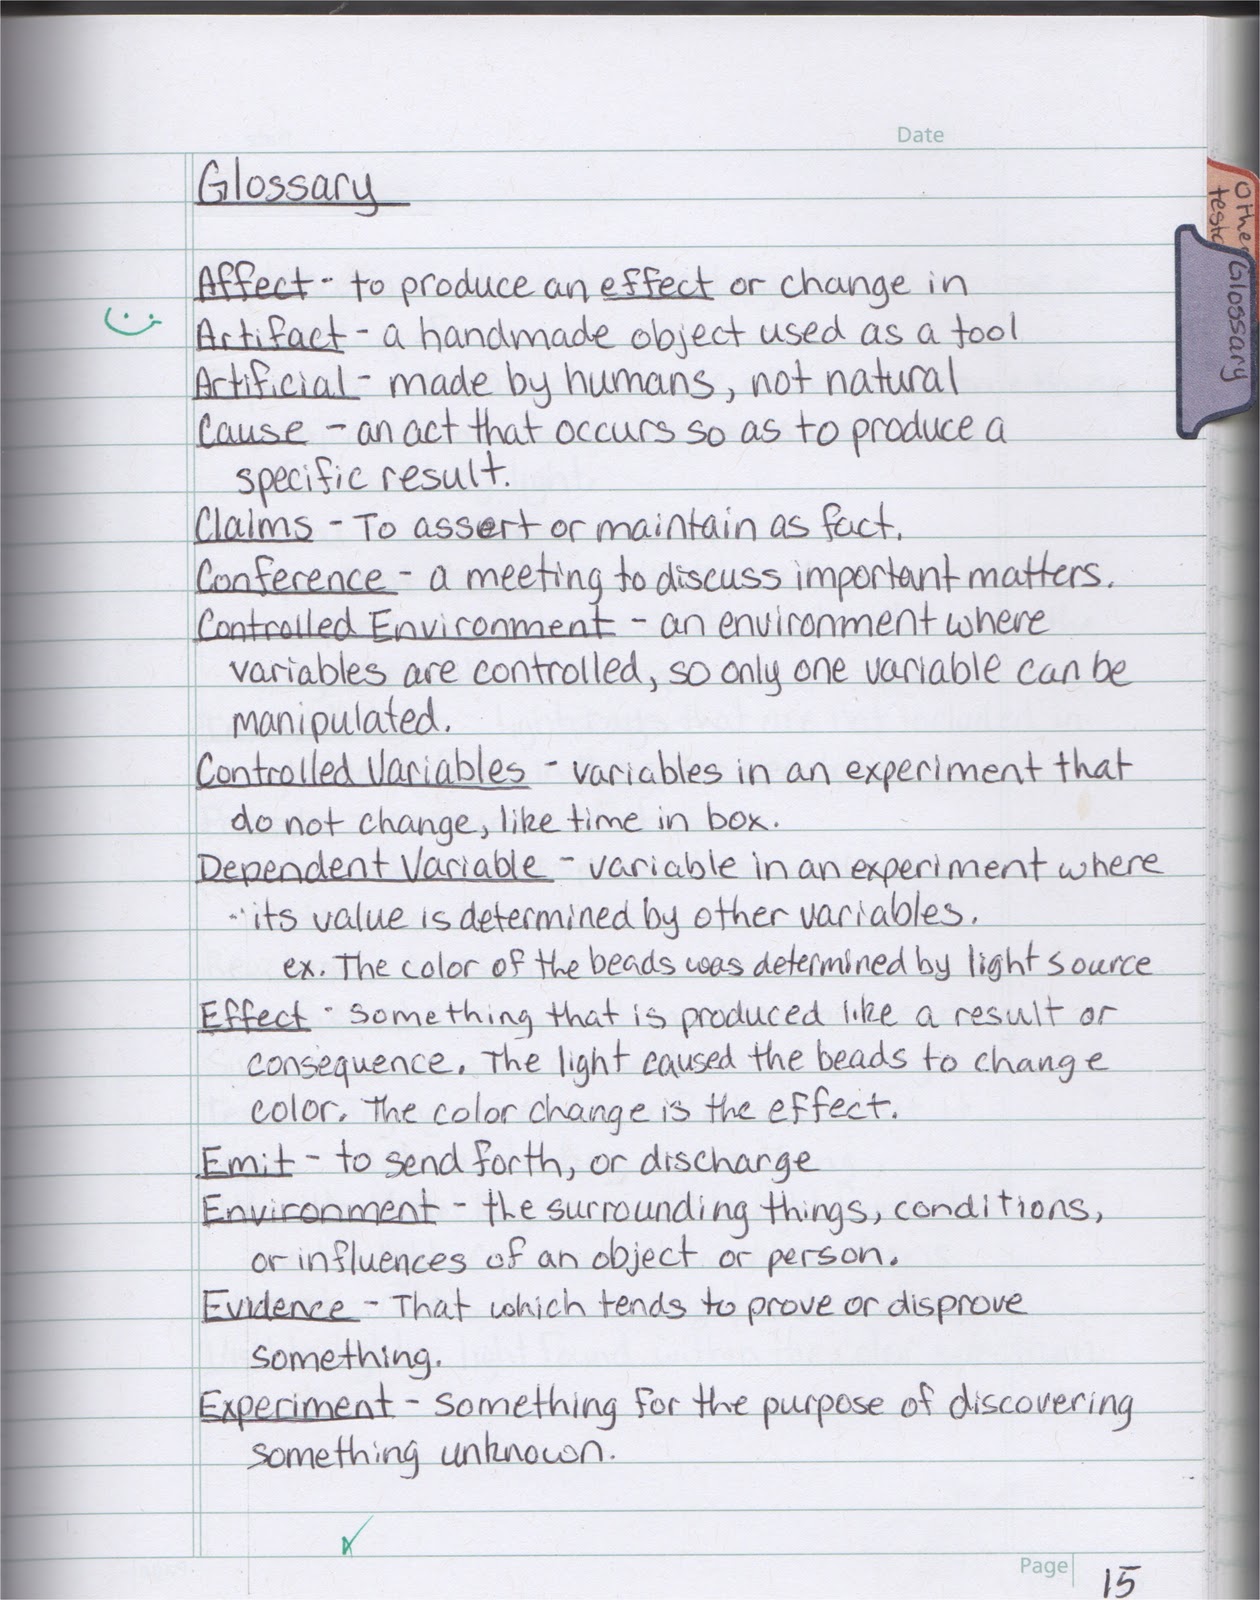 Date
Glossary
Affect - to produce an effect or change in
Artifact - a handmade object used as a tool
Artificial - made by humans, not natural
Cause - an act that occurs so as to produce a
specific result.
Claims - To assert or maintain as fact.
Conference - a meeting to discuss important matters.
Controlled Environment - an environment where
variables are controlled, so only one variable can be
manipulated.
Controlled Variables - variables in an experiment that
do not change, like time in box.
Dependent Variable - variable in an experiment where
its value is determined by other variables.
ex. The color of the beads was determined by light source
Effect - something that is produced like a result or
consequence. The light caused the beads to change
color. The color change is the effect.
Emit - to send forth, or discharge
Environment - the surrounding things, conditions,
or influences of an object or person.
Evidence - That which tends to prove or disprove
something.
Experiment - something for the purpose of discovering
something unknown.
Page 15
Glossary